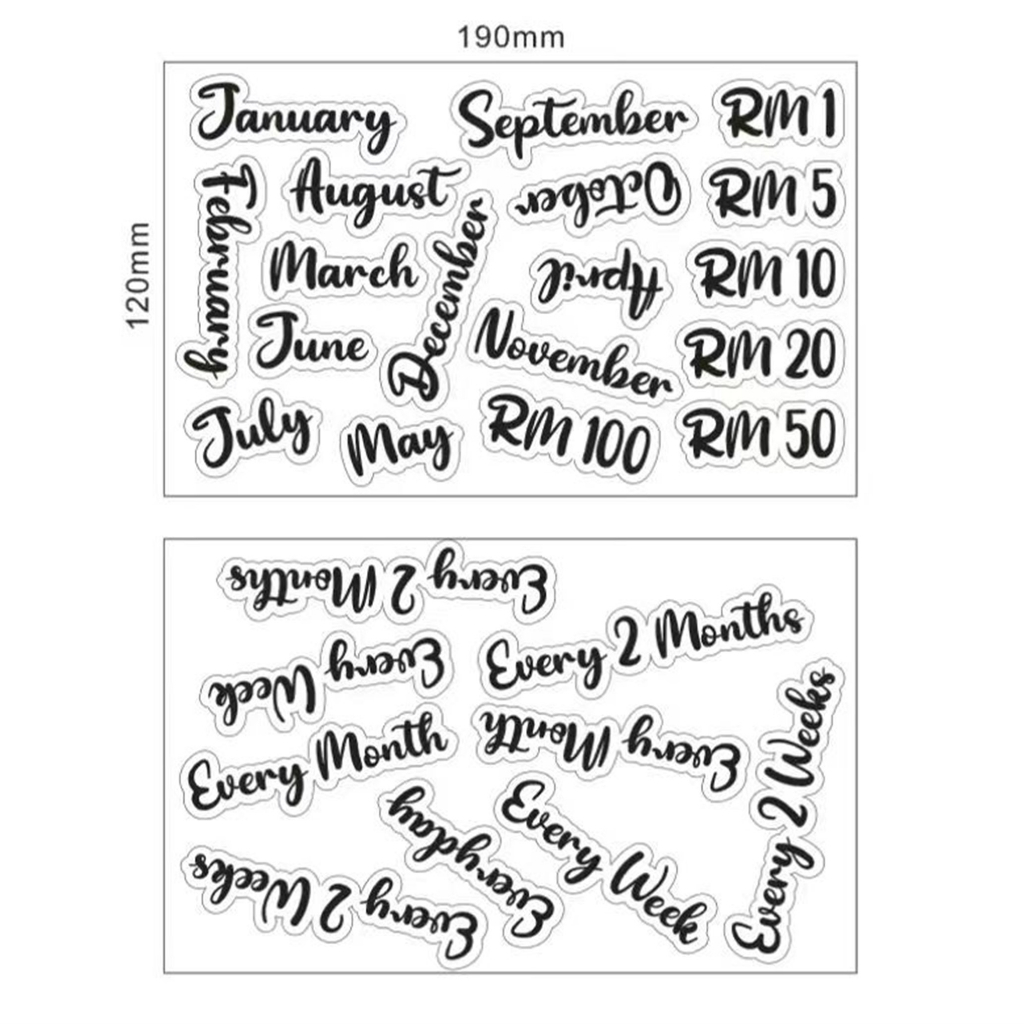 190mm
120mm
January
September
RM 1
February
August
October
RM 5
March
December
April
RM 10
June
November
RM 20
July
May
RM 100
RM 50
Every 2 Months
Every 2 Months
Every Week
Every 2 Weeks
Every Month
Every Month
Everyday
Every Week
Every 2 Weeks